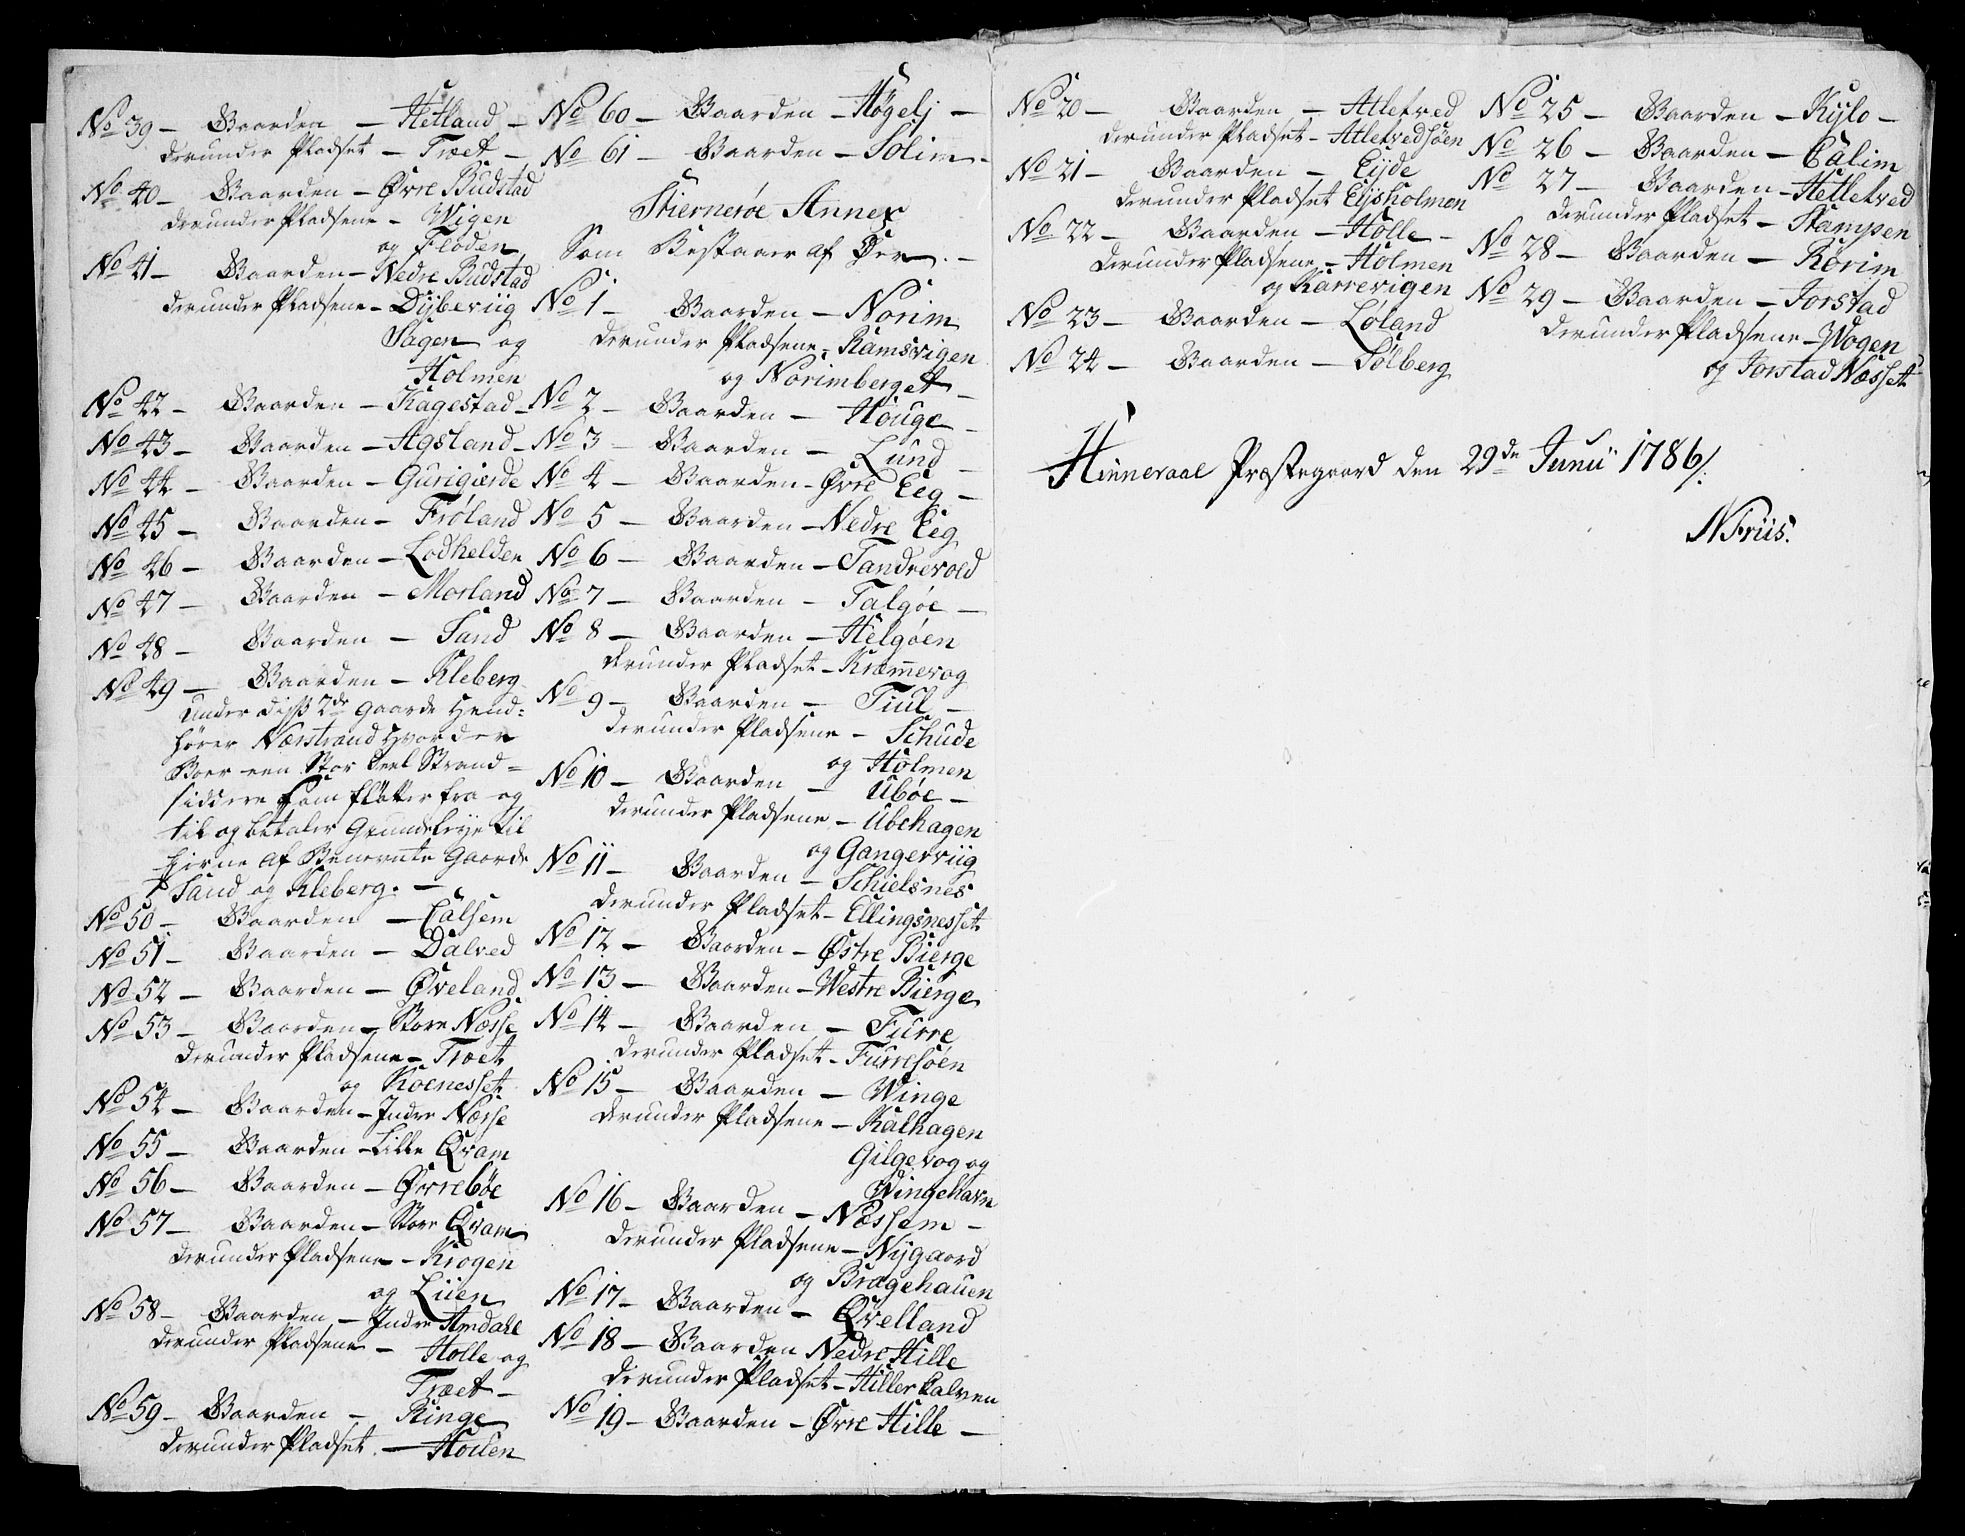 No 39 – Gaarden – Hetland –
derunder Pladset – Træet –
No 40 – Gaarden – Øvre Budstad
derunder Pladsene – Wigen
og Floden
No 41 – Gaarden – Nedre Budstad
derunder Pladsene – Dybeviig
Hagen og
Holmen
No 42 – Gaarden – Kagestad –
No 43 – Gaarden – Agsland –
No 44 – Gaarden – Gurigierde
No 45 – Gaarden – Frøland
No 46 – Gaarden – Lodhelden
No 47 – Gaarden – Mosland
No 48 – Gaarden – Sand
No 49 – Gaarden – Kleberg
under disse 2de gaarde Hend=
hører Nærstrand hvor der
Boer een Stor Deel Strand=
siddere som flötter fra og
til og betaler Grundeleye til
Eierne af Benevnte Gaarde
Sand og Kleberg. –
No 50 – Gaarden – Calsem
No 51 – Gaarden – Dalved
No 52 – Gaarden – Øveland
No 53 – Gaarden – Store Næsse
derunder Pladsene – Træet
og Koenesset
No 54 – Gaarden – Indre Næsse
No 55 – Gaarden – Lille Qvam
No 56 – Gaarden – Øvrebøe
No 57 – Gaarden – Store Qvam
derunder Pladsene – Krogen
og Liien
No 58 – Gaarden – Indre Amdahl
derunder Pladsene – Holle og
Træet –
No 59 – Gaarden – Ringe
derunder Pladset – Houen
No 60 – Gaarden – Høgelj –
No 61 – Gaarden – Solim –
Stiernerøe Annex
Som Bestaaer af Øer. –
No 1 – Gaarden – Norim
derunder Pladsene – Ramsvigen
og Norimberget –
No 2 – Gaarden – Houge –
No 3 – Gaarden – Lund –
No 4 – Gaarden – Øvre Eeg –
No 5 – Gaarden – Nedre Eeg
No 6 – Gaarden – Tandrevold
No 7 – Gaarden – Talgøe –
No 8 – Gaarden – Helgøen
derunder Pladset – Kræmmevog
No 9 – Gaarden – Tiul –
derunder Pladsene – Schude
og Holmen
No 10 – Gaarden – Ubøe –
derunder Pladsene – Ubehagen
og Gangerviig
No 11 – Gaarden – Schielsnes
derunder Pladset – Ellingsnesset
No 12 – Gaarden – Østre Bierge
No 13 – Gaarden – Westre Bierge
No 14 – Gaarden – Furre
derunder Pladset – Furresøen
No 15 – Gaarden – Winge
derunder Pladsene – Kalhagen
Gilgevog og
Wingehavn
No 16 – Gaarden – Næssem –
derunder Pladsene – Nygaard
og Brægehauen
No 17 – Gaarden – Qvelland
No 18 – Gaarden Nedre Hille
derunder Pladset – Hillerkalven
No 19 – Gaarden – Øvre Hille –
No 20 – Gaarden – Atletved
derunder Pladset – Atletvedsøen
No 21 – Gaarden – Eyde
derunder Pladset Eysholmen
No 22 – Gaarden – Holle –
derunder Pladsene – Holmen
og Karrevigen
No 23 – Gaarden – Løland
No 24 – Gaarden – Sølberg
No 25 – Gaarden – Kylo –
No 26 – Gaarden – Calim
No 27 – Gaarden – Hetletved
derunder Pladset – Stampen
No 28 – Gaarden – Rørim
No 29 – Gaarden – Jorstad
derunder Pladsene – Wogen
og Jorstad Næsset
Hinneraae Præstegaard den 29de Junii 1786/.
N Friis.